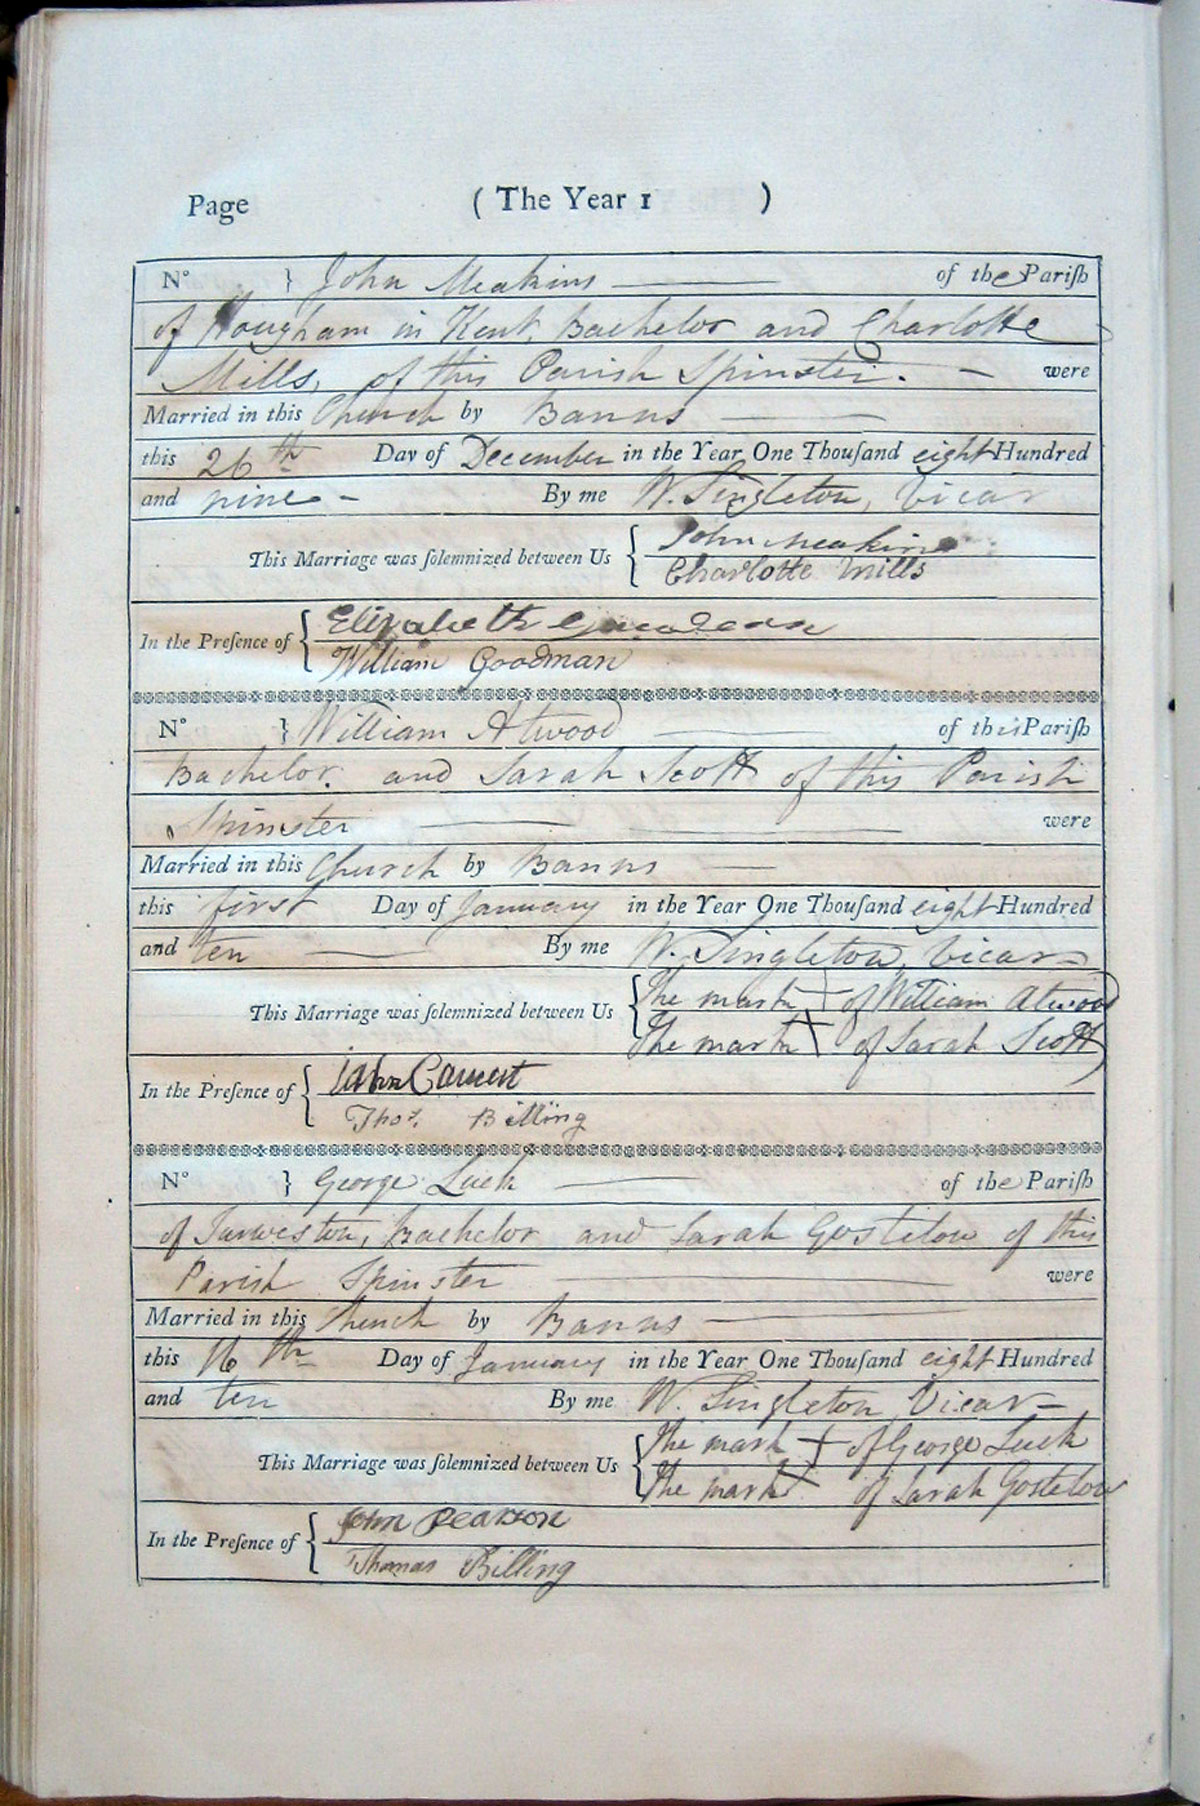 Page ( The Year 1 )
N° } John Meakins of the Pariſh
of Hougham in Kent, Bachelor and Charlotte
Mills, of this Parish Spinster. were
Married in this Church by Banns
this 26th Day of December in the Year One Thouſand eight Hundred
and nine By me W. Singleton, Vicar
This Marriage was ſolemnized between Us { John Meakins
Charlotte Mills
In the Preſence of { Elizabeth
William Goodman
N° } William Atwood of this Pariſh
Bachelor. and Sarah Scott of this Parish
Spinster were
Married in this Church by Banns
this first Day of January in the Year One Thouſand eight Hundred
and ten By me W. Singleton, Vicar
This Marriage was ſolemnized between Us { The mark + of William Atwood
The mark + of Sarah Scott
In the Preſence of { John
Thos. Billing
N° } George Luck of the Pariſh
of Bachelor and Sarah Gostelow of this
Parish Spinster were
Married in this Church by Banns
this 16th Day of January in the Year One Thouſand eight Hundred
and ten By me W. Singleton Vicar
This Marriage was ſolemnized between Us { The mark + of George Luck
The mark + of Sarah Gostelow
In the Preſence of { John Pearson
Thomas Billing